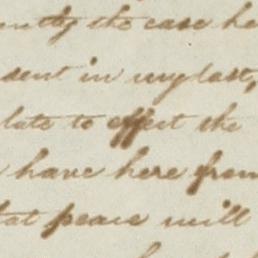 the case he
sent in my last,
late to effect the
have here from
peace will